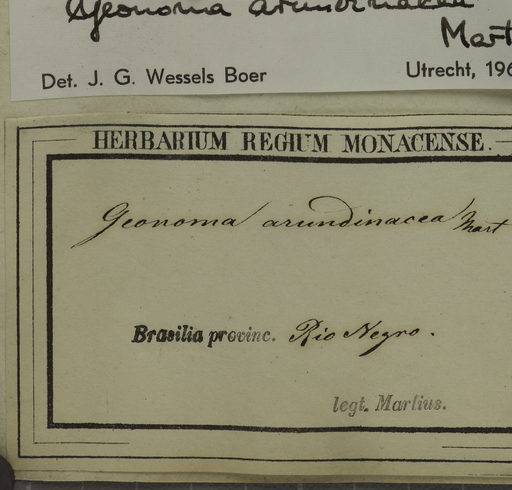 Geonoma arundinacea
Mart
Det. J. G. Wessels Boer
Utrecht, 196
HERBARIUM REGIUM MONACENSE.
Geonoma arundinacea Mart
Brasilia provinc. Rio Negro.
legt. Martius.